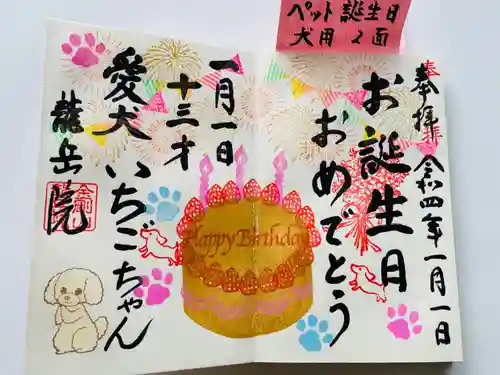 ペット誕生日
犬用 2面
奉拝
令和四年一月一日
お誕生日
おめでとう
Happy Birthday
一月一日
十三才
愛犬 いちごちゃん
龍岳院